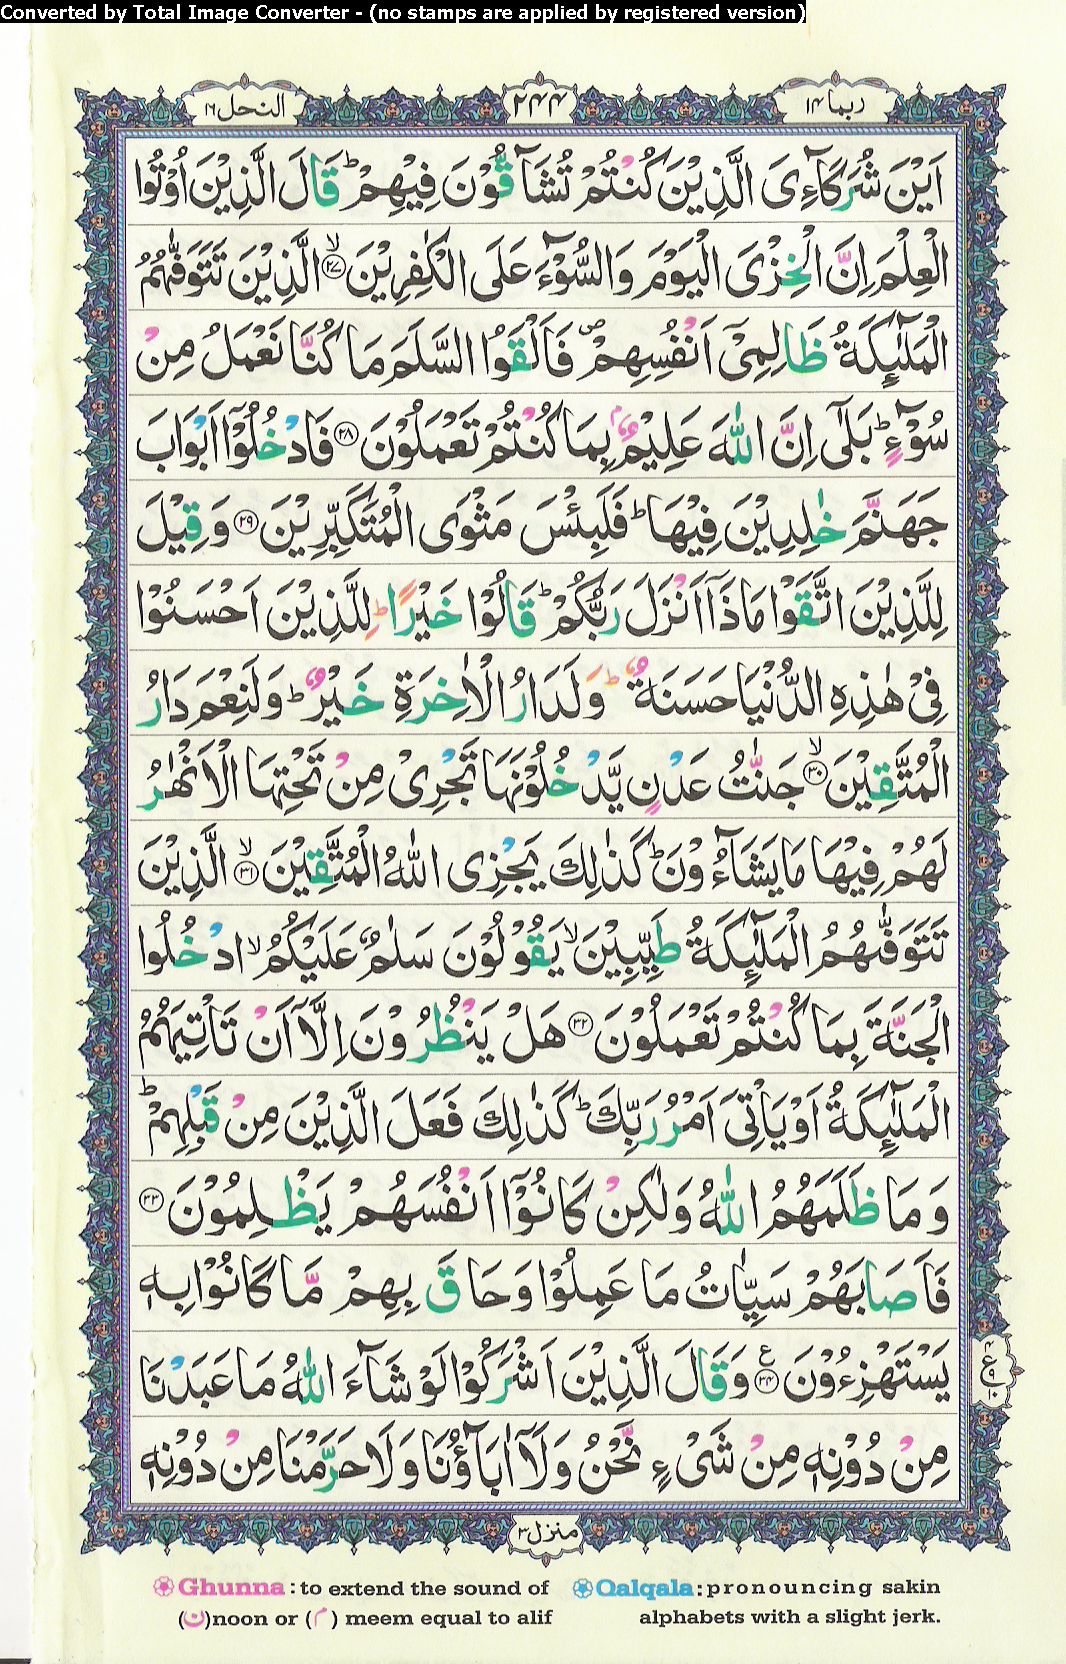 Converted by Total Image Converter - (no stamps are applied by registered version)
ربما ۱۴
۲۴۴
النحل ۱۶
اَیْنَ شُرَكَآءِیَ الَّذِیْنَ كُنْتُمْ تُشَآقُّوْنَ فِیْهِمْ ؕ قَالَ الَّذِیْنَ اُوْتُوا
الْعِلْمَ اِنَّ الْخِزْیَ الْیَوْمَ وَالسُّوْٓءَ عَلَی الْكٰفِرِیْنَ ۙ﴿۲۷﴾ الَّذِیْنَ تَتَوَفّٰىهُمُ
الْمَلٰٓئِكَةُ ظَالِمِیْۤ اَنْفُسِهِمْ ۪ فَاَلْقَوُا السَّلَمَ مَا كُنَّا نَعْمَلُ مِنْ
سُوْٓءٍ ؕ بَلٰۤی اِنَّ اللّٰهَ عَلِیْمٌۢ بِمَا كُنْتُمْ تَعْمَلُوْنَ ﴿۲۸﴾ فَادْخُلُوْۤا اَبْوَابَ
جَهَنَّمَ خٰلِدِیْنَ فِیْهَا ؕ فَلَبِئْسَ مَثْوَی الْمُتَكَبِّرِیْنَ ﴿۲۹﴾ وَقِیْلَ
لِلَّذِیْنَ اتَّقَوْا مَاذَاۤ اَنْزَلَ رَبُّكُمْ ؕ قَالُوْا خَیْرًا ؕ لِلَّذِیْنَ اَحْسَنُوْا
فِیْ هٰذِهِ الدُّنْیَا حَسَنَةٌ ؕ وَلَدَارُ الْاٰخِرَةِ خَیْرٌ ؕ وَلَنِعْمَ دَارُ
الْمُتَّقِیْنَ ۙ﴿۳۰﴾ جَنّٰتُ عَدْنٍ یَّدْخُلُوْنَهَا تَجْرِیْ مِنْ تَحْتِهَا الْاَنْهٰرُ
لَهُمْ فِیْهَا مَا یَشَآءُوْنَ ؕ كَذٰلِكَ یَجْزِی اللّٰهُ الْمُتَّقِیْنَ ۙ﴿۳۱﴾ الَّذِیْنَ
تَتَوَفّٰىهُمُ الْمَلٰٓئِكَةُ طَیِّبِیْنَ ۙ یَقُوْلُوْنَ سَلٰمٌ عَلَیْكُمُ ۙ ادْخُلُوا
الْجَنَّةَ بِمَا كُنْتُمْ تَعْمَلُوْنَ ﴿۳۲﴾ هَلْ یَنْظُرُوْنَ اِلَّاۤ اَنْ تَاْتِیَهُمُ
الْمَلٰٓئِكَةُ اَوْ یَاْتِیَ اَمْرُ رَبِّكَ ؕ كَذٰلِكَ فَعَلَ الَّذِیْنَ مِنْ قَبْلِهِمْ ؕ
وَمَا ظَلَمَهُمُ اللّٰهُ وَلٰكِنْ كَانُوْۤا اَنْفُسَهُمْ یَظْلِمُوْنَ ﴿۳۳﴾
فَاَصَابَهُمْ سَیِّاٰتُ مَا عَمِلُوْا وَحَاقَ بِهِمْ مَّا كَانُوْا بِهٖ
یَسْتَهْزِءُوْنَ ﴿۳۴﴾ ع وَقَالَ الَّذِیْنَ اَشْرَكُوْا لَوْ شَآءَ اللّٰهُ مَا عَبَدْنَا
مِنْ دُوْنِهٖ مِنْ شَیْءٍ نَّحْنُ وَلَاۤ اٰبَآؤُنَا وَلَا حَرَّمْنَا مِنْ دُوْنِهٖ
۴ ع ۹ ۱۰
منزل ۳
Ghunna : to extend the sound of
(ن)noon or (م) meem equal to alif
Qalqala : pronouncing sakin
alphabets with a slight jerk.